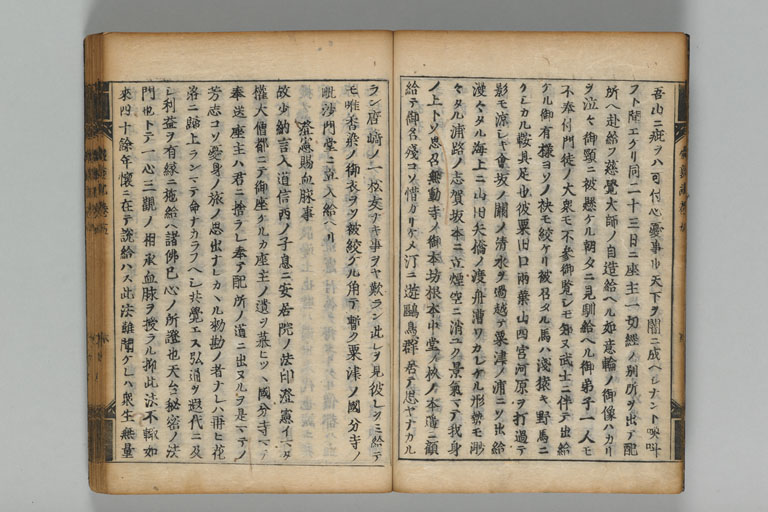 吾山ニ疵ヲハ可付心憂事ハ天下ヲ闇ニ成ヘシナント
フト聞エケリ同二十三日ニ座主一切經ノ別所ヲ出テ配
所ヘ赴給ツ慈覺大師ノ自造給ヘル如意輪ノ御像ハカリ
ヲ泣々御頸ニ被懸ケル朝夕ニ見馴給ヘル御弟子一人モ
不奉付門徒ノ大衆モ不参御覧シモ知ヌ武士ニ伴テ出給
ケル御有様ヨソノ袂モ絞ケリ被召タル馬ハ淺猿キ野馬ニ
クレカル鞍具足也彼粟田口兩葉山四宮河原ヲ打過テ
影モ涼シキ會坂ノ關ノ清水ヲ過越テ粟津ノ浦ニソ出給
漫々タル海上ニ山田矢橋ノ渡舟漕ワカレケル形勢モ
々タル浦路ノ志賀坂本ニ立煙空ニ消ユク景氣マテ我身
ノ上トソ思召無動寺ノ御本坊根本中堂ノ杦ノ本遥ニ顧
給テ御名殘コソ惜カリケメ汀ニ遊鷗鳥群居テ思ヤナカル
ラン唐崎ノ一松友ナキ事ヲヤ歎ラン此レヲ見彼レヲミ給テ
モ唯香染ノ御衣ヲソ被絞ケル角テ暫ク粟津ノ國分寺ノ
毗沙門堂ニ立入給ヘリ
澄憲賜血脉事
故少納言入道信西ノ子息ニ安居院ノ法印澄憲イマタ
權大僧都ニテ御座ケルカ座主ノ遺ヲ慕ヒツヽ國分寺マテ
奉送座主ハ君ニ捨ラレ奉テ配所ノ道ニ出ヌルヲ是マテノ
芳志コソ憂身ノ旅ノ思出ナレカヽル勅勘ノ者ナレハ再ヒ花
洛ニ歸上ラン
レ利益ヲ有縁ニ施給ヘ諸佛已心ノ所證也天台秘密ノ法
門也トテ一心三觀ノ相承血脉ヲ授ラル抑此法不輙如
來四十餘年懷ニ在テ説給ハス此法雖聞ケレハ衆生無量